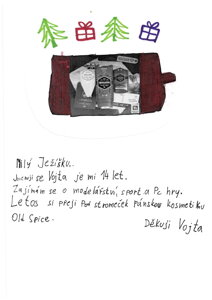 Milý Ježíšku.
Jmenuji se Vojta je mi 14 let.
Zajímám se o modelářství, sport a Pc hry.
Letos si přeji Pod stromeček pánskou kosmetiku
Old Spice.
Děkuji Vojta